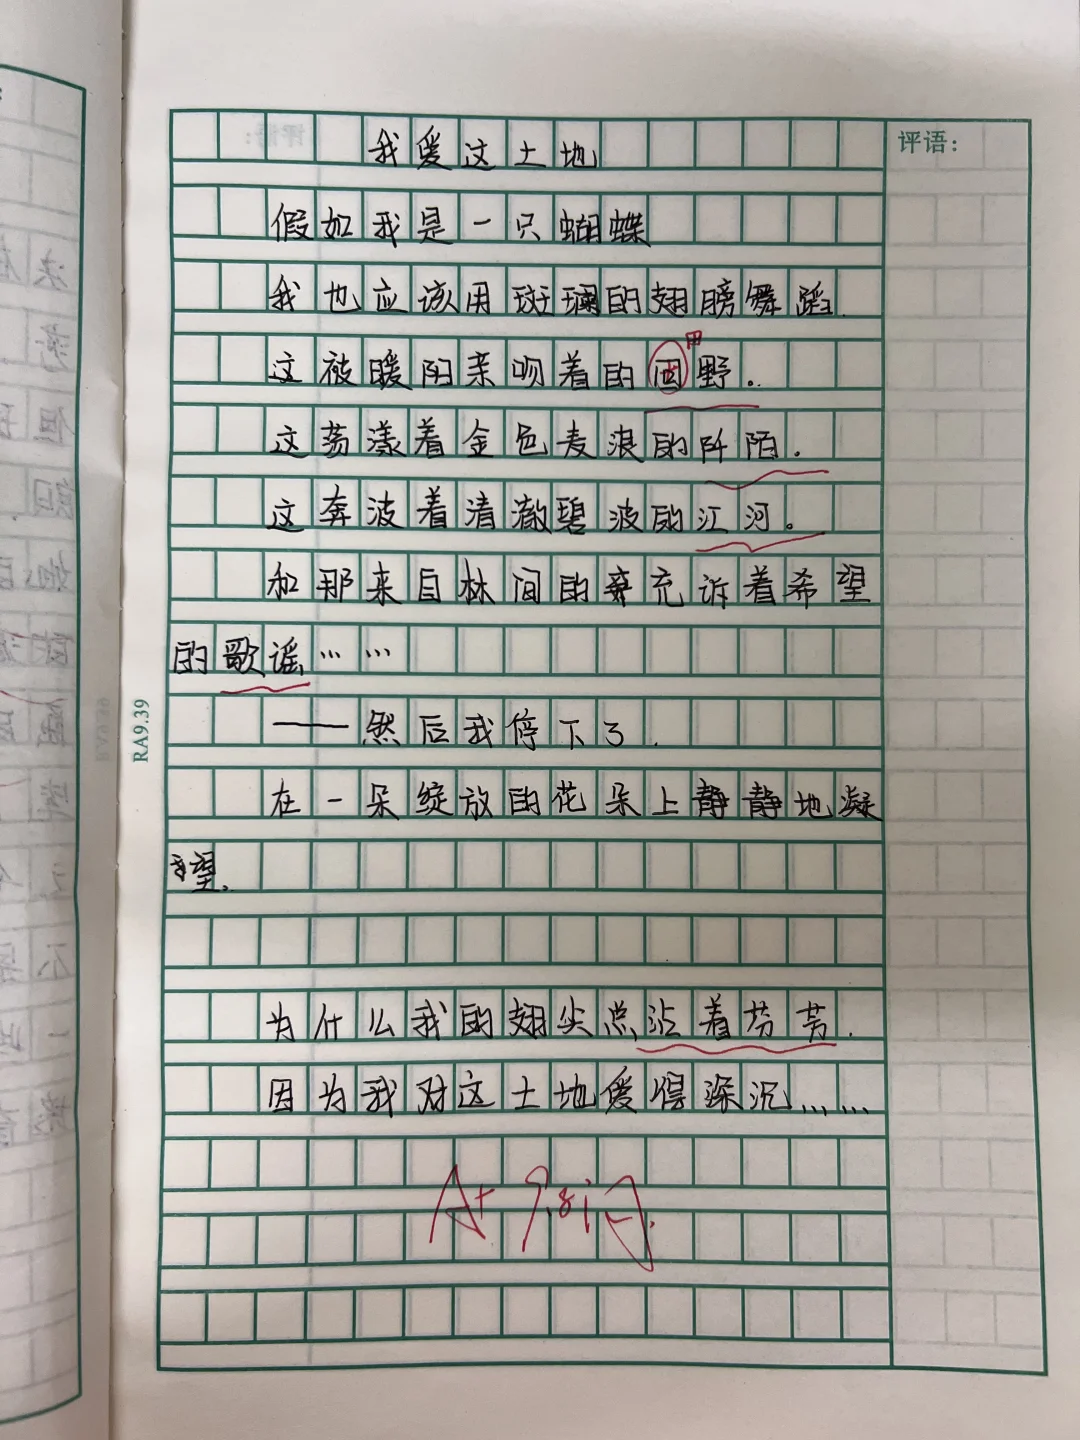 评语：
我爱这土地
假如我是一只蝴蝶
我也应该用斑斓的翅膀舞蹈.
田
这被暖阳亲吻着的野。
这荡漾着金色麦浪的阡陌.
这奔波着清澈碧波的江河。
和那来自林间的充诉着希望
的歌谣……
——然后我停下了.
在一朵绽放的花朵上静静地凝
望.
为什么我的翅尖总沾着芬芳.
因为我对这土地爱得深沉……
A+ 9.8
RA9.39